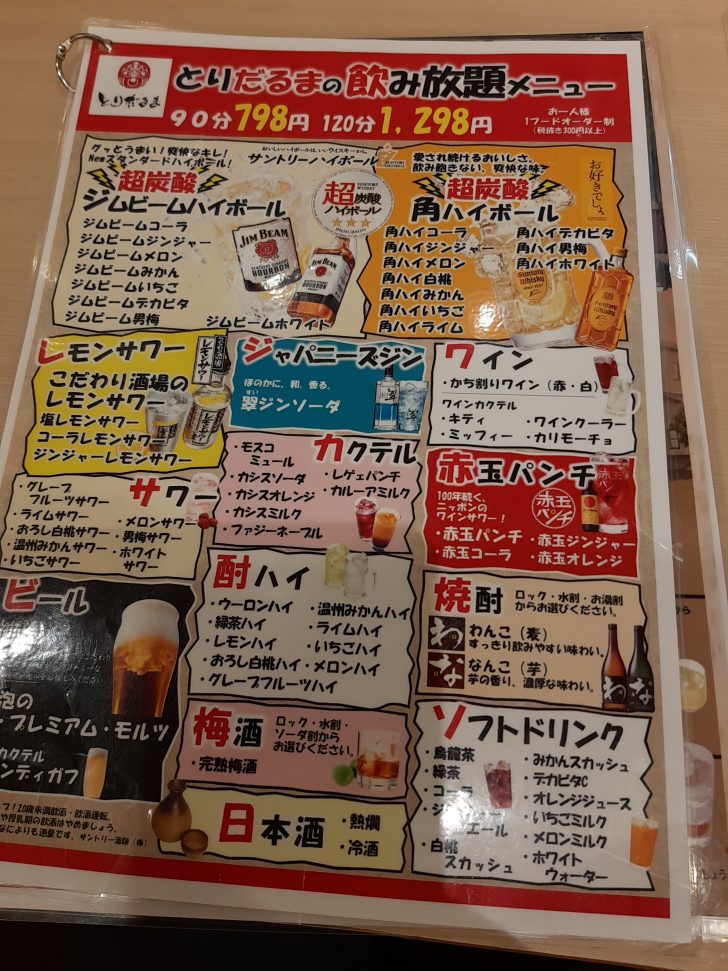 とりだるま
とりだるまの飲み放題メニュー
90分798円 120分1,298円
お一人様
1フードオーダー制
(税抜き300円以上)
グッとうまい!爽快なキレ!
Newスタンダードハイボール!
おいしいハイボールは、いいウイスキーから。
サントリーハイボール
超炭酸
ジムビームハイボール
ジムビームコーラ
ジムビームジンジャー
ジムビームメロン
ジムビームみかん
ジムビームいちご
ジムビームデカビタ
ジムビーム男梅
ジムビームホワイト
超炭酸
ハイボール
JIM BEAM
BOURBON
JIM BEAM
BOURBON
愛され続けるおいしさ。
飲み飽きない、爽快な味?
お好きでしょ。
超炭酸
角ハイボール
角ハイコーラ
角ハイジンジャー
角ハイメロン
角ハイ白桃
角ハイみかん
角ハイいちご
角ハイライム
角ハイデカビタ
角ハイ男梅
角ハイホワイト
Suntory
Whisky
Suntory
Whisky
レモンサワー
こだわり酒場の
レモンサワー
塩レモンサワー
コーラレモンサワー
ジンジャーレモンサワー
ジャパニーズジン
ほのかに、和、香る。
すい
翠ジンソーダ
ワイン
・かち割りワイン(赤・白)
ワインカクテル
・キティ
・ミッフィー
・ワインクーラー
・カリモーチョ
カクテル
・モスコ
ミュール
・カシスソーダ
・カシスオレンジ
・カシスミルク
・ファジーネーブル
・レゲェパンチ
・カルーアミルク
赤玉パンチ
100年続く、
ニッポンの
ワインサワー!
赤玉
パンチ
・赤玉パンチ
・赤玉コーラ
・赤玉ジンジャー
・赤玉オレンジ
サワー
・グレープ
フルーツサワー
・ライムサワー
・おろし白桃サワー
・温州みかんサワー
・いちごサワー
・メロンサワー
・男梅サワー
・ホワイト
サワー
酎ハイ
・ウーロンハイ
・緑茶ハイ
・レモンハイ
・おろし白桃ハイ
・グレープフルーツハイ
・温州みかんハイ
・ライムハイ
・いちごハイ
・メロンハイ
焼酎
ロック・水割・お湯割
からお選びください。
わんこ(麦)
すっきり飲みやすい味わい。
なんこ(芋)
芋の香り、濃厚な味わい。
わ
な
わ
な
ビール
泡の
・プレミアム・モルツ
カクテル
ンディガフ
梅酒
ロック・水割・
ソーダ割から
お選びください。
・完熟梅酒
日本酒
・熱燗
・冷酒
ソフトドリンク
・烏龍茶
・緑茶
・コーラ
エール
・白桃
スカッシュ
・みかんスカッシュ
・デカビタC
・オレンジジュース
・いちごミルク
・メロンミルク
・ホワイト
ウォーター
プ!20歳未満飲酒・飲酒運転。
や授乳期の飲酒はやめましょう。
なによりも適量です。サントリー酒類(株)